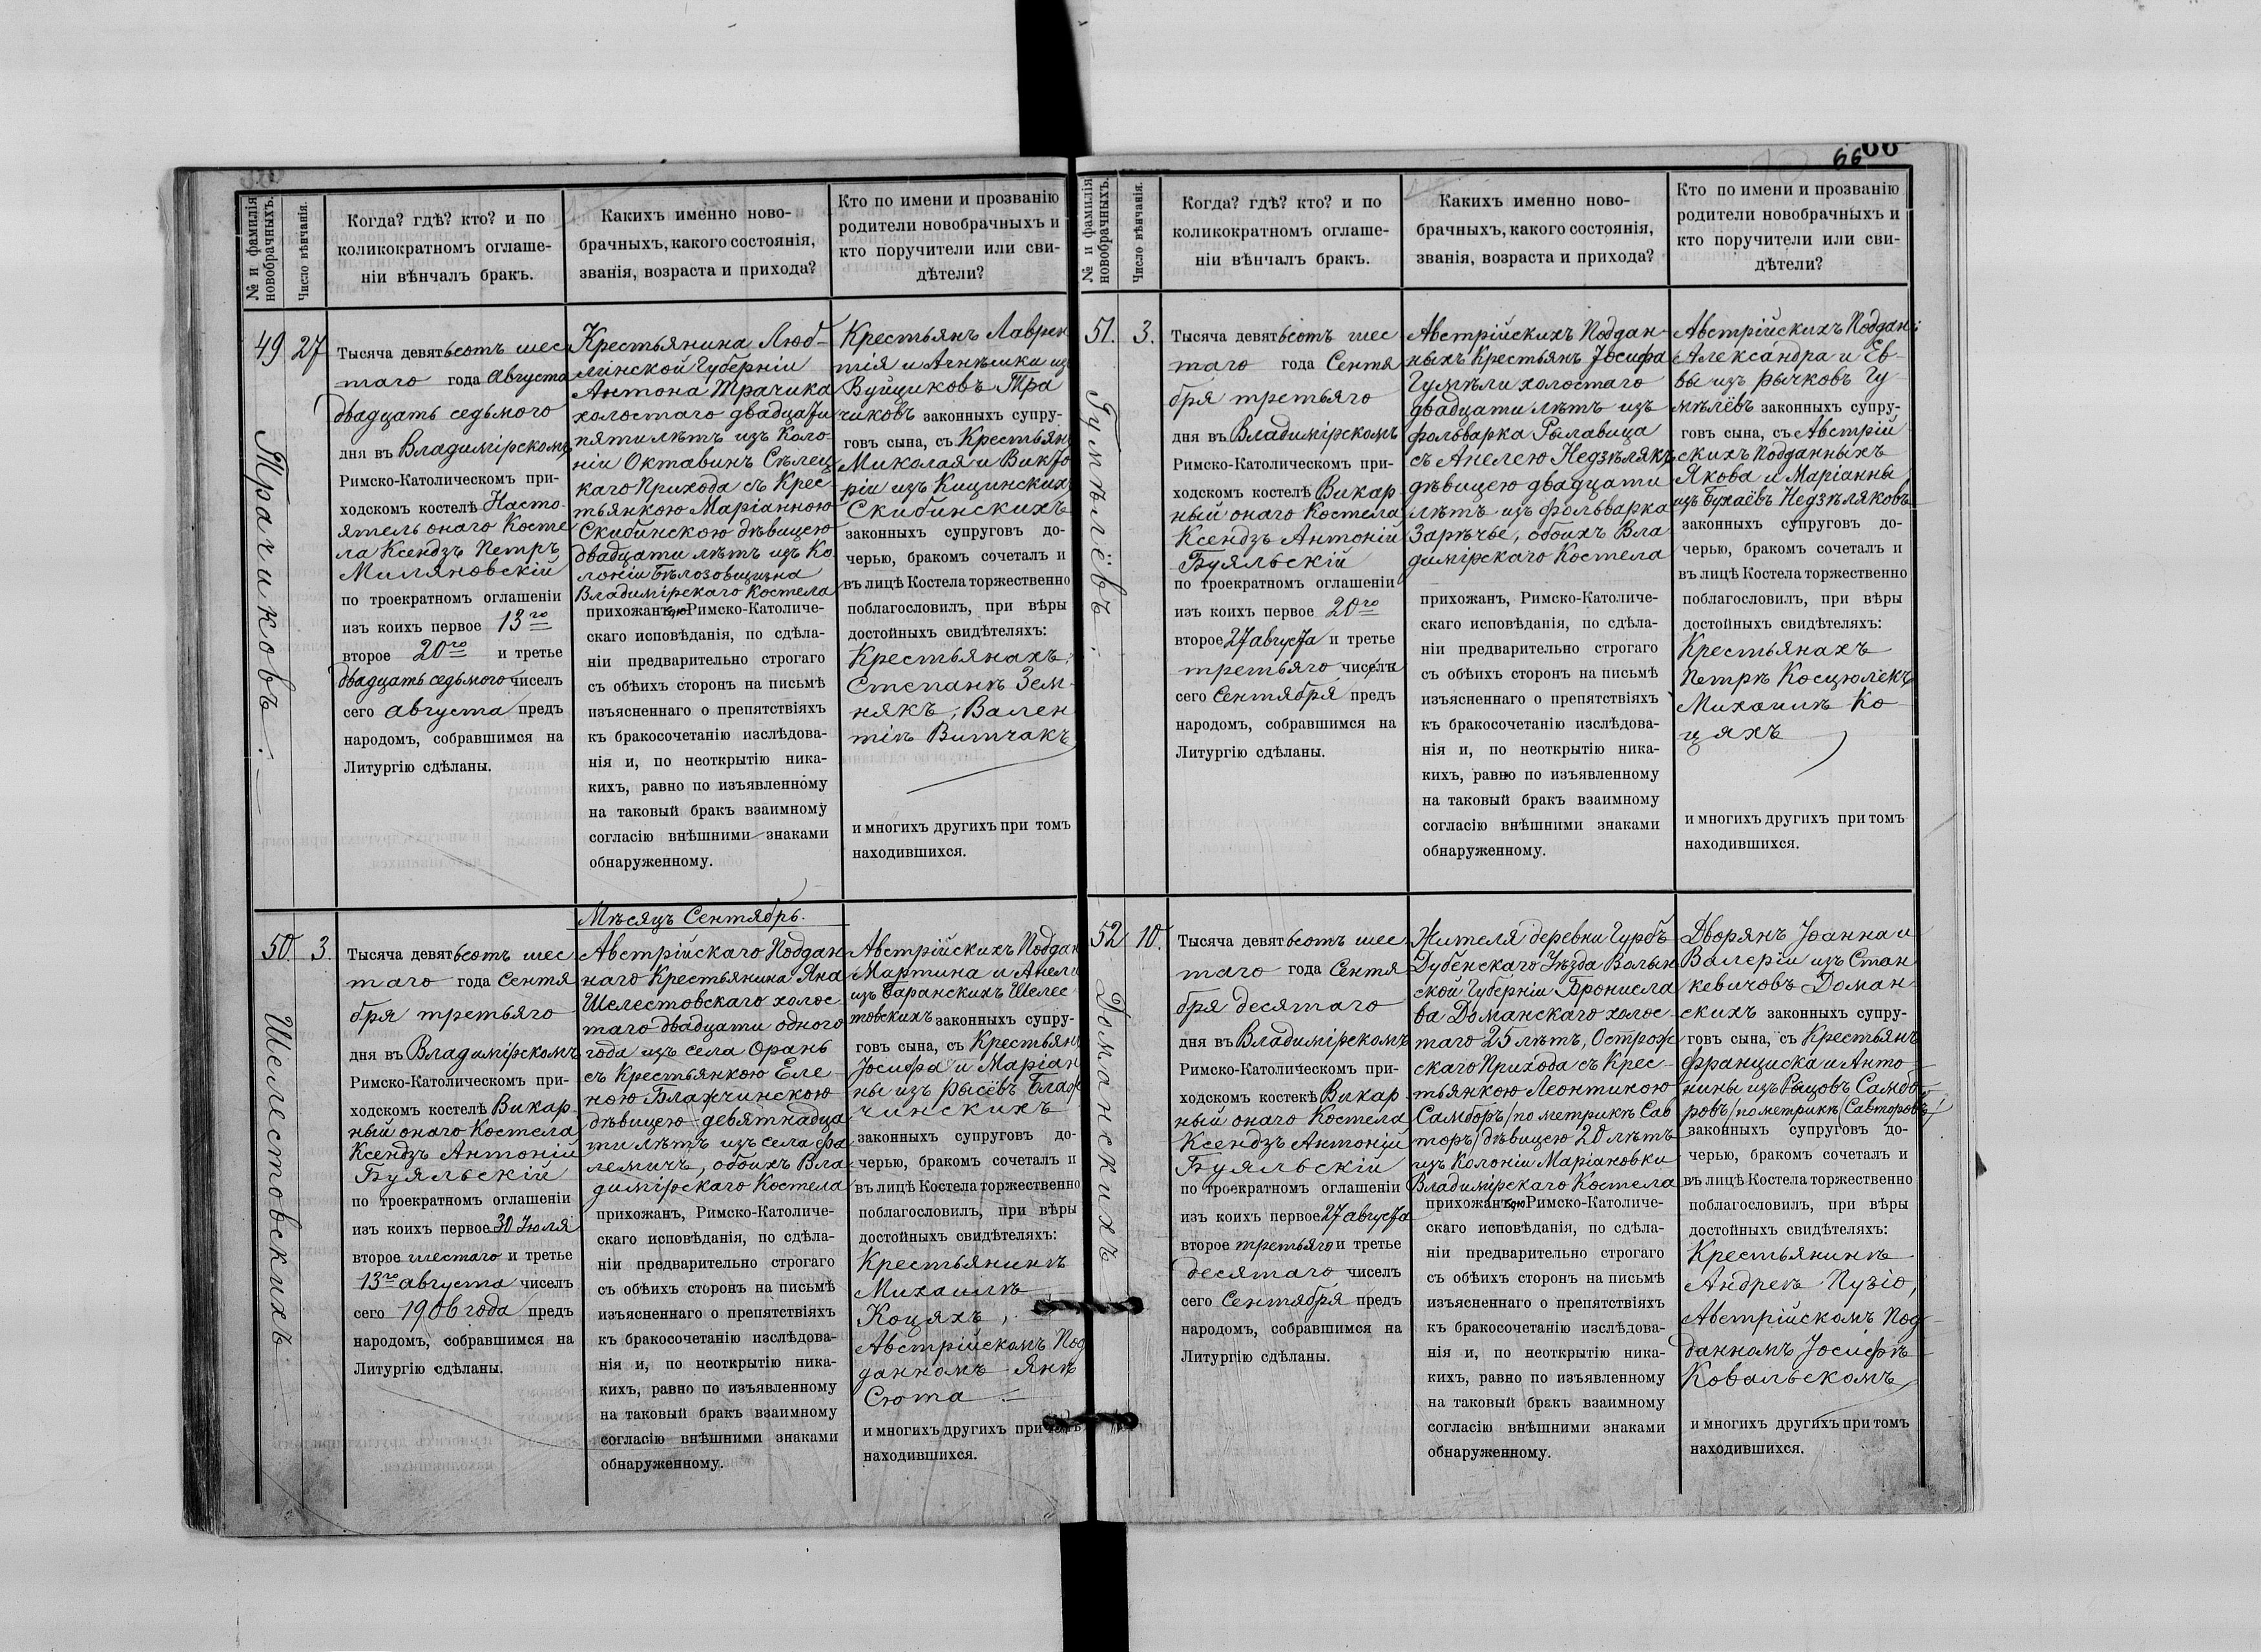 66
66
№ и фамилія
новобрачныхъ.
Число вѣнчанія.
Когда? гдѣ? кто? и по
коликократномъ оглаше-
ніи вѣнчалъ бракъ.
Какихъ именно ново-
брачныхъ, какого состоянія,
званія, возраста и прихода?
Кто по имени и прозванію
родители новобрачныхъ и
кто поручители или сви-
дѣтели?
49
Трачиковъ.
27
Тысяча девятьсотъ шес
таго года Августа
двадцать седьмого
дня въ Владимірскомъ
Римско-Католическомъ при-
ходскомъ костелѣ Насто-
ятель онаго Косте
ла Ксендзъ Петръ
Миляновскій
по троекратномъ оглашеніи
изъ коихъ первое 13го
второе 20го и третье
двадцать седьмого чиселъ
сего августа предъ
народомъ, собравшимся на
Литургію сдѣланы.
Крестьянина Люб-
линской Губерніи
Антона Трачика
холостаго двадцати
пяти лѣтъ изъ Коло-
ніи Октавинъ Сѣлец
каго Прихода съ Крес-
тьянкою Маріанною
Скибинскою дѣвицею
двадцати лѣтъ изъ Ко
лоніи Бѣлозовщизна
Владимірскаго Костела
прихожанъ кою Римско-Католиче-
скаго исповѣданія, по сдѣла-
ніи предварительно строгаго
съ обѣихъ сторонъ на письмѣ
изъясненнаго о препятствіяхъ
къ бракосочетанію изслѣдова-
нія и, по неоткрытію ника-
кихъ, равно по изъявленному
на таковый бракъ взаимному
согласію внѣшними знаками
обнаруженному.
Крестьянъ Лаврен
тія и Агнѣшки из
Вуйциковъ Тра
чиковъ законныхъ супру-
говъ сына, съ Крестьян
Миколая и Викто
ріи изъ Кицинских
Скибинскихъ
законныхъ супруговъ до-
черью, бракомъ сочеталъ и
въ лицѣ Костела торжественно
поблагословилъ, при вѣры
достойныхъ свидѣтеляхъ:
Крестьянахъ,
Степанѣ Зем-
някъ, Вален
тіѣ Витчакъ
и многихъ другихъ при томъ
находившихся.
50
Шелестовскихъ
3.
Тысяча девятьсотъ шес
таго года Сентя
бря третьяго
дня въ Владимірскомъ
Римско-Католическомъ при-
ходскомъ костелѣ Викар-
ный онаго Костела
Ксендзъ Антоній
Буяльскій
по троекратномъ оглашеніи
изъ коихъ первое 30 Іюля
второе шестаго и третье
13го августа чиселъ
сего 1906 года предъ
народомъ, собравшимся на
Литургію сдѣланы.
Мѣсяцъ Сентябрь.
Австрійскаго Поддан
наго Крестьянина Яна
Шелестовскаго холос
таго двадцати одного
года изъ села Орань
съ Крестьянкою Еле-
ною Блажчинскою
дѣвицею девятнадца
ти лѣтъ изъ села Фа
лемичъ, обоихъ Вла
димірскаго Костела
прихожанъ, Римско-Католиче-
скаго исповѣданія, по сдѣла-
ніи предварительно строгаго
съ обѣихъ сторонъ на письмѣ
изъясненнаго о препятствіяхъ
къ бракосочетанію изслѣдова-
нія и, по неоткрытію ника-
кихъ, равно по изъявленному
на таковый бракъ взаимному
согласію внѣшними знаками
обнаруженному.
Австрійскихъ Поддан
Мартина и Анели
изъ Баранскихъ Шелес
товскихъ законныхъ супру-
говъ сына, съ Крестьян
Іосифа и Маріан
ны изъ Рысёвъ Блаж
чинскихъ
законныхъ супруговъ до-
черью, бракомъ сочеталъ и
въ лицѣ Костела торжественно
поблагословилъ, при вѣры
достойныхъ свидѣтеляхъ:
Крестьянинѣ
Михаилѣ
Коцяхъ,
Австрійскомъ Под
данномъ Янѣ
Сюта
и многихъ другихъ при томъ
находившихся.
№ и фамилія
новобрачныхъ.
Число вѣнчанія.
Когда? гдѣ? кто? и по
коликократномъ оглаше-
ніи вѣнчалъ бракъ.
Какихъ именно ново-
брачныхъ, какого состоянія,
званія, возраста и прихода?
Кто по имени и прозванію
родители новобрачныхъ и
кто поручители или сви-
дѣтели?
51.
Гумѣлёвъ.
3.
Тысяча девятьсотъ шес
таго года Сентя
бря третьяго
дня въ Владимірскомъ
Римско-Католическомъ при-
ходскомъ костелѣ Викар
ный онаго Костела
Ксендзъ Антоній
Буяльскій
по троекратномъ оглашеніи
изъ коихъ первое 20го
второе 27 августа и третье
третьяго чиселъ
сего Сентября предъ
народомъ, собравшимся на
Литургію сдѣланы.
Австрійскихъ Поддан-
ныхъ Крестьянъ Іосифа
Гумѣли холостаго
двадцати лѣтъ изъ
фольварка Рылавица
съ Анелею Недзѣлякъ
дѣвицею двадцати
лѣтъ изъ фольварка
Зарѣчье, обоихъ Вла
димірскаго Костела
прихожанъ, Римско-Католиче-
скаго исповѣданія, по сдѣла-
ніи предварительно строгаго
съ обѣихъ сторонъ на письмѣ
изъясненнаго о препятствіяхъ
къ бракосочетанію изслѣдова-
нія и, по неоткрытію ника-
кихъ, равно по изъявленному
на таковый бракъ взаимному
согласію внѣшними знаками
обнаруженному.
Австрійскихъ Поддан:
Александра и Ев-
вы изъ Рычковъ Гу-
мѣлёвъ законныхъ супру-
говъ сына, съ Австрій
скихъ Подданныхъ
Якова и Маріанны
изъ Бухаёвъ Недзѣляковъ
законныхъ супруговъ до-
черью, бракомъ сочеталъ и
въ лицѣ Костела торжественно
поблагословилъ, при вѣры
достойныхъ свидѣтеляхъ:
Крестьянахъ
Петрѣ Косцюлекъ
Михаилѣ Ко-
цяхъ
и многихъ другихъ при томъ
находившихся.
52
Доманскихъ
10.
Тысяча девятьсотъ шес
таго года Сентя
бря десятаго
дня въ Владимірскомъ
Римско-Католическомъ при-
ходскомъ костекѣ Викар
ный онаго Костела
Ксендзъ Антоній
Буяльскій
по троекратномъ оглашеніи
изъ коихъ первое 27 августа
второе третьяго и третье
десятаго чиселъ
сего Сентября предъ
народомъ, собравшимся на
Литургію сдѣланы.
Жителя деревни Гурбъ
Дубенскаго Уѣзда Волын
ской Губерніи Бронисла
ва Доманскаго холос-
таго 25 лѣтъ, Острож
скаго Прихода съ Крес-
тьянкою Леонтиною
Самборъ /по метрикѣ Сав
торъ/ дѣвицею 20 лѣтъ
изъ Колоніи Маріановки
Владимірскаго Костела
прихожанъ кою Римско-Католиче-
скаго исповѣданія, по сдѣла-
ніи предварительно строгаго
съ обѣихъ сторонъ на письмѣ
изъясненнаго о препятствіяхъ
къ бракосочетанію изслѣдова-
нія и, по неоткрытію ника-
кихъ, равно по изъявленному
на таковый бракъ взаимному
согласію внѣшними знаками
обнаруженному.
Дворянъ Іоанна и
Валеріи изъ Стан
кевичовъ Доман
скихъ законныхъ супру-
говъ сына, съ Крестьянъ
Франциска и Анто-
нины изъ Рыцовъ Самбо
ровъ /по метрикѣ Савторовъ/
законныхъ супруговъ до-
черью, бракомъ сочеталъ и
въ лицѣ Костела торжественно
поблагословилъ, при вѣры
достойныхъ свидѣтеляхъ:
Крестьянинѣ
Андреѣ Пузіо,
Австрійскомъ Под
данномъ Іосифѣ
Ковальскомъ
и многихъ другихъ при томъ
находившихся.